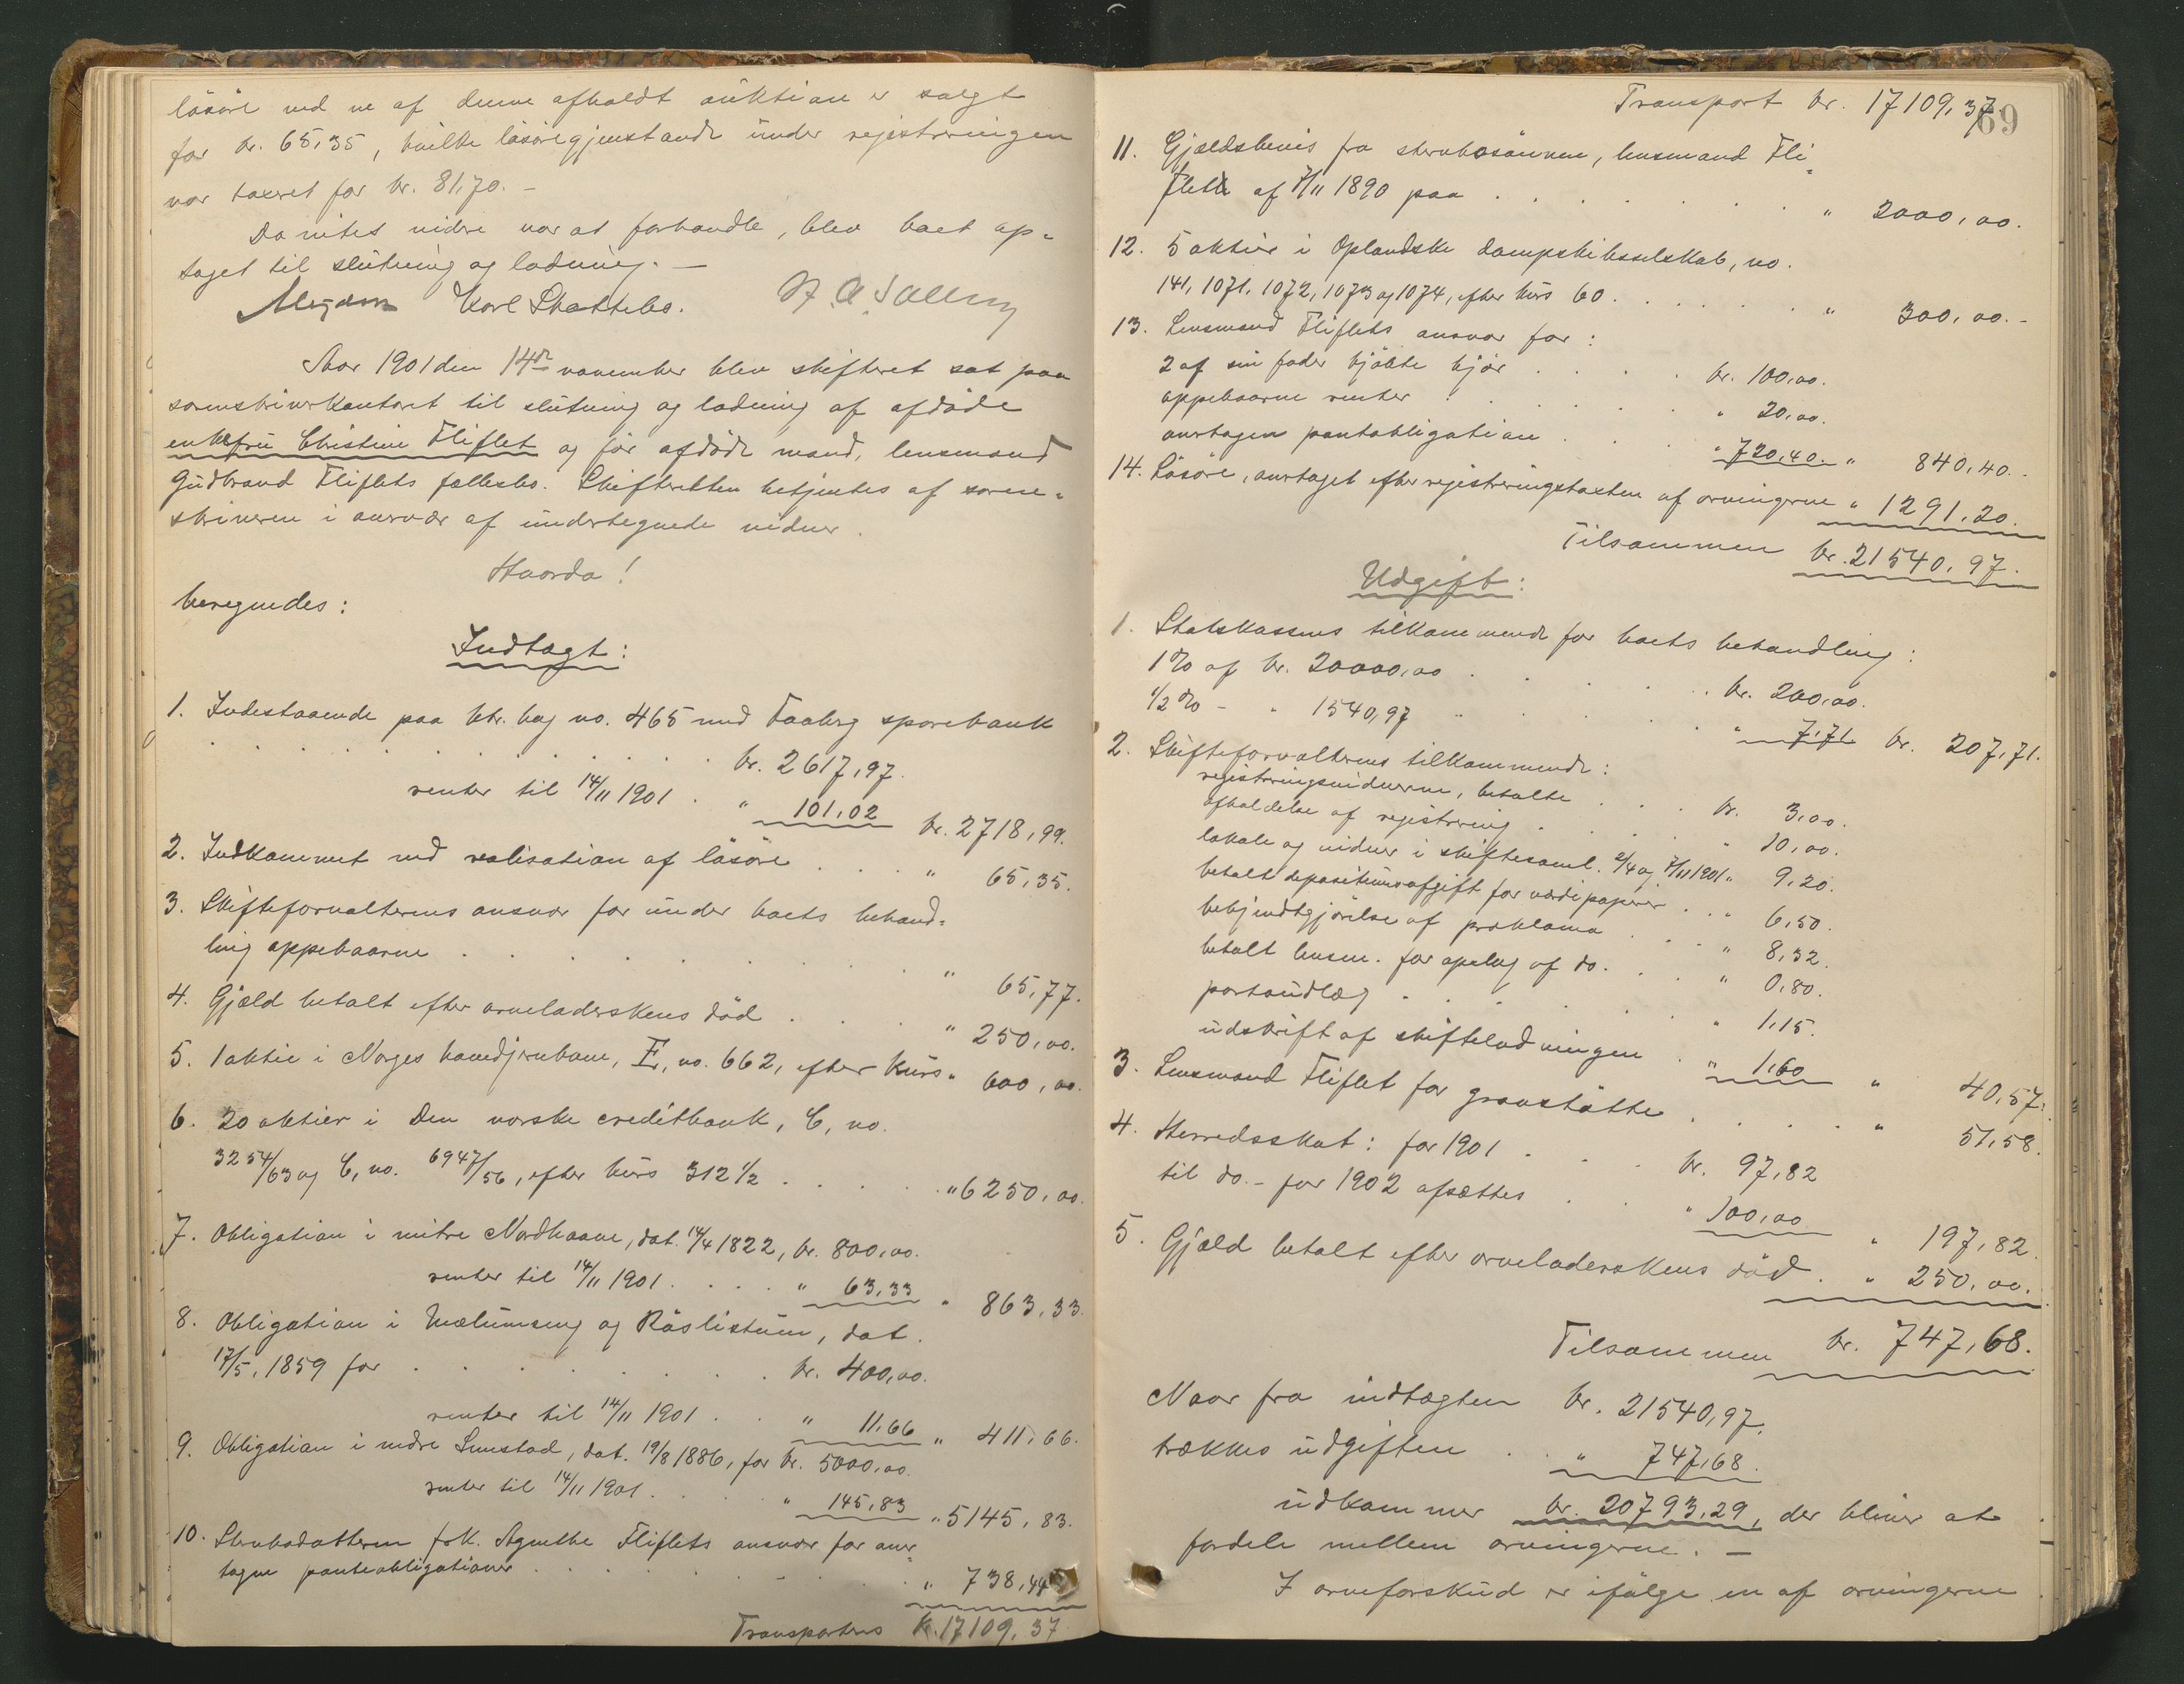 løsøre ved ne af denne afholdt auktion er solgt
for kr. 65,35, hvilke løsøregjenstande under registreringen
var taxeret for kr. 81,70. –
Da intet videre var at forhandle, blev boet op-
taget til slutning og lodning. –
Karl Skattebo.
Aar 1901 den 14de november blev skifteret sat paa
sorenskriverkontoret til slutning og lodning af afdøde
enkefru Christine Fliflet og før afdøde mand, lensmand
Gudbrand Fliflets fællesbo. Skifteretten betjentes af soren-
skriveren i overvær af undertegnede vidner.
Hvorda!
beregnedes:
Indtægt:
1. Indestaaende paa ktr. bog no. 465 med Faaberg sparebank
kr. 2617,97.
renter til 14/11 1901 . " 101,02 kr. 2718,99.
2. Indkommet ved realisation af løsøre . . . " 65,35.
3. Skifteforvalterens ansvar for under boets behand-
ling oppebaarne . . . " 65,77.
4. Gjæld betalt efter arveladerskens død . . . " 250,00.
5. 1 aktie i Norges hovedjernbane, E, no. 662, efter kurs " 600,00.
6. 20 aktier i Den norske creditbank, C, no.
3254/63 og C, no. 6947/56, efter kurs 312 1/2 . . . " 6250,00.
7. Obligation i nitre Nordhaave, dat. 14/4 1822, kr. 800,00.
renter til 14/11 1901 . . . " 63,33 " 863,33.
8. Obligation i Mælumseng og Røslistuen, dat.
17/5. 1859 for . . . kr. 400,00.
renter til 14/11 1901 . . " 11,66 " 411,66.
9. Obligation i nedre Lunstad, dat. 19/8 1886, for kr. 5000,00.
renter til 14/11 1901 . . . " 145,83 " 5145,83.
10. Sterbodatteren frk. Agnethe Fliflets ansvar for over-
tagne panteobligationer . . . " 738,44
Transporteres kr. 17109,37
69
Transport kr. 17109,37.
11. Gjældsbevis fra sterbosønnen, lensmand Fli-
flet af 7/11 1890 paa . . . " 2000,00.
12. 5 aktier i Oplandske dampskibsselskab, no.
141, 1071, 1072, 1073 og 1074, efter kurs 60 . . . " 300,00. –
13. Lensmand Fliflets ansvar for:
2 af sin fader kjøbte kjør . . . kr. 100,00.
oppebaarne renter . . . " 20,00.
overtagen panteobligation . . . " 720,40. " 840,40. –
14. Løsøre, overtaget efter registreringstaxten af arvingerne " 1291,20.
Tilsammen kr. 21540,97.
Udgift:
1. Statskassens tilkommende for boets behandling:
1 % af kr. 20000,00 . . . kr. 200,00.
1/2 % – " 1540,97 . . . " 7,71. kr. 207,71.
2. Skifteforvalterens tilkommende:
registreringsvidnerne, betalte . . . kr. 3,00.
afholdelse af registrering . . . " 10,00.
lokale og vidner i skiftesaml. 2/4 og 7/11 1901 " 9,20.
betalt depositumsafgift for værdipapirer . . " 6,50.
bekjendtgjørelse af proklama . . . " 8,32.
betalt lensm. for opslag af do. . . " 0,80.
portoudlæg . . . " 1,15.
udskrift af skiftelodningen . " 1,60 " 40,57.
3. Lensmand Fliflet for gravstøtte . . . " 51,58.
4. Herredsskat: for 1901 . . . kr. 97,82
til do. – for 1902 afsættes . . " 100,00 " 197,82.
5. Gjæld betalt efter arveladerskens død . " 250,00.
Tilsammen kr. 747,68.
Naar fra indtægten kr. 21540,97.
trækkes udgiften . . " 747,68.
udkommer kr. 20793,29, der bliver at
fordele mellem arvingerne. –
I arveforskud er ifølge en af arvingerne